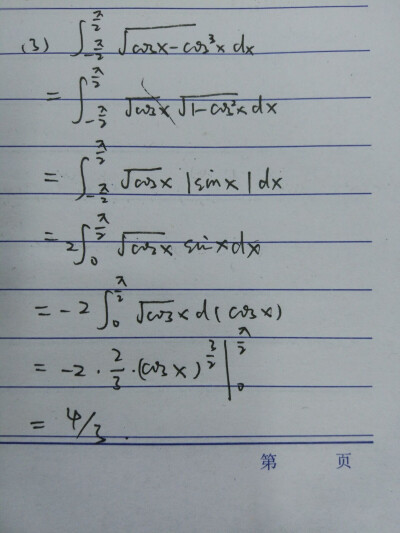 (3) ∫_{-π/2}^{π/2} √(cosx-cos³x) dx
= ∫_{-π/2}^{π/2} √cosx √(1-cos²x) dx
= ∫_{-π/2}^{π/2} √cosx |sinx| dx
= 2∫_0^{π/2} √cosx sinxdx
= -2 ∫_0^{π/2} √cosx d(cosx)
= -2 · 2/3 · (cosx)^{3/2} |_0^{π/2}
= 4/3.
第 页